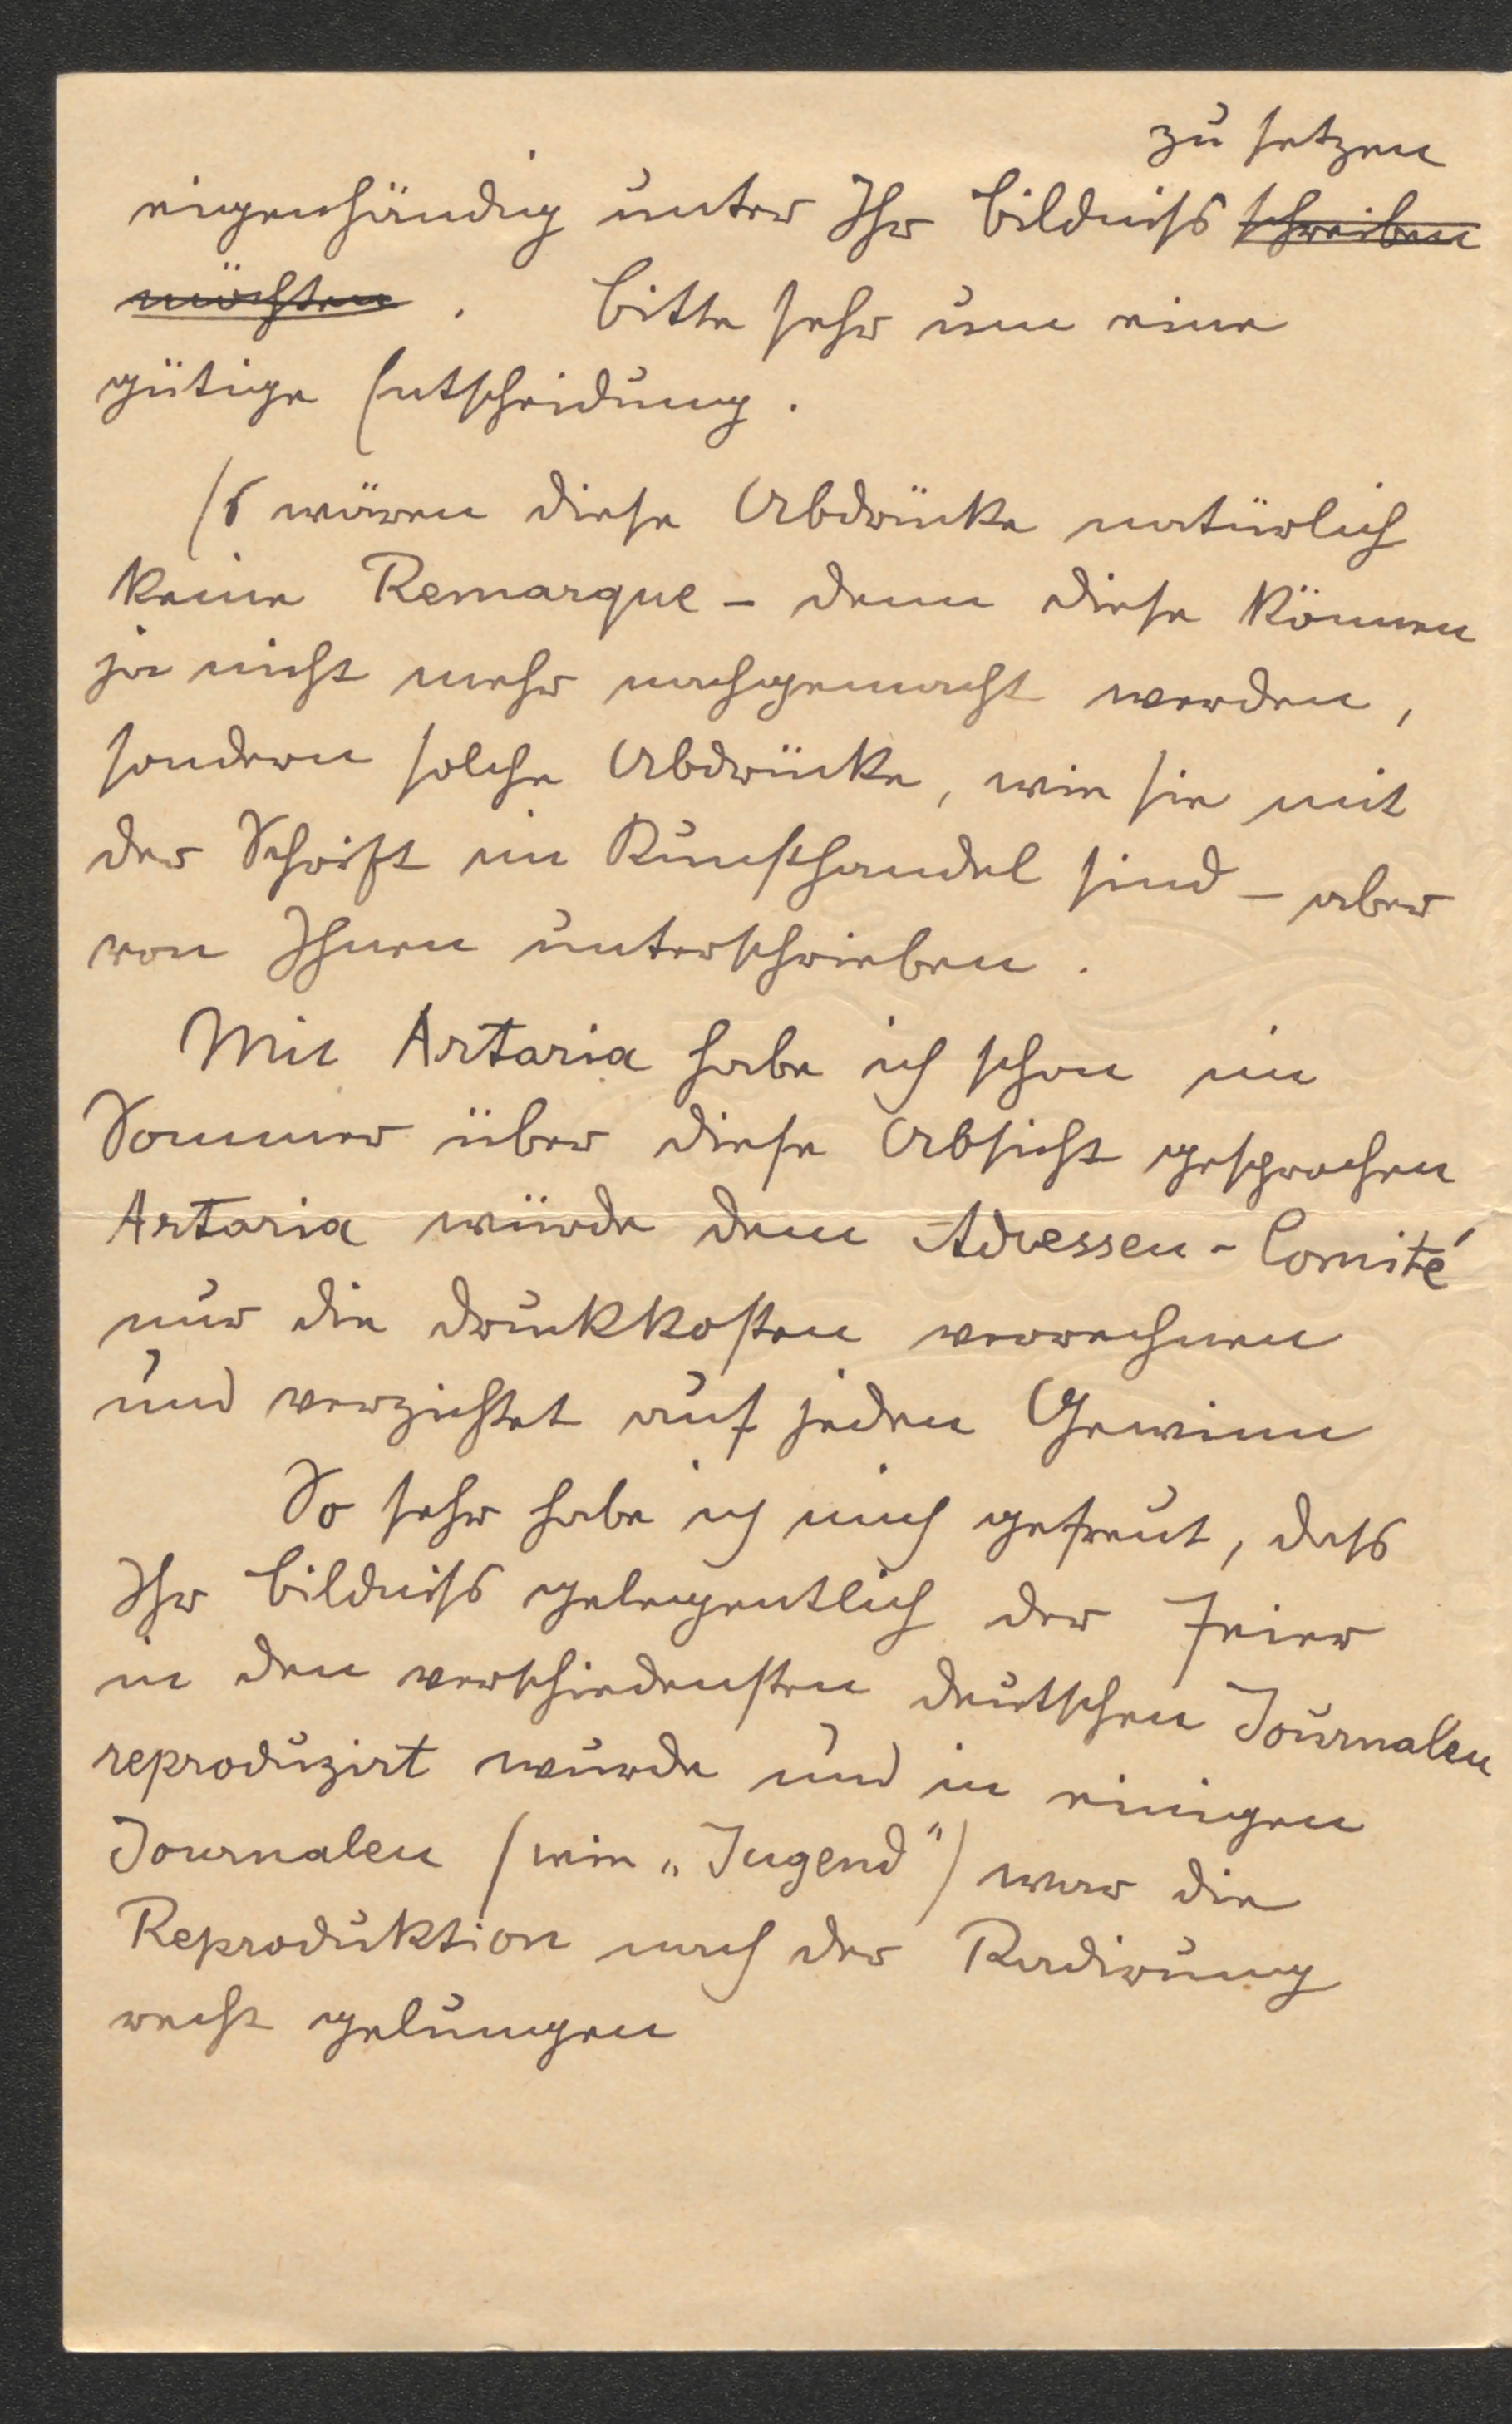 zu setzen
eigenhändig unter Ihr Bildniss schreiben
möchten . Bitte sehr um eine
gütige Entscheidung.
Es wären diese Abdrücke natürlich
keine Remarque – denn diese können
ja nicht mehr nachgemacht werden,
sondern solche Abdrücke, wie sie mit
der Schrift im Kunsthandel sind – aber
von Ihnen unterschrieben.
Mit Artaria habe ich schon im
Sommer über diese Absicht gesprochen
Artaria würde dem Adressen-Comité
nur die Druckkosten verrechnen
und verzichtet auf jeden Gewinn
So sehr habe ich mich gefreut, dass
Ihr Bildniss gelegentlich der Feier
in den verschiedensten deutschen Journalen
reproduzirt wurde und in einigen
Journalen (wie „Jugend") war die
Reproduktion nach der Radirung
recht gelungen